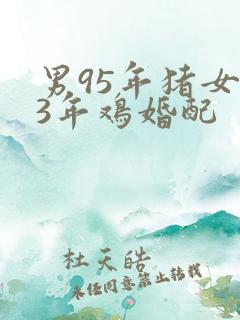 男95年猪女
3年鸡婚配
杜天皓
未经同意禁止转载